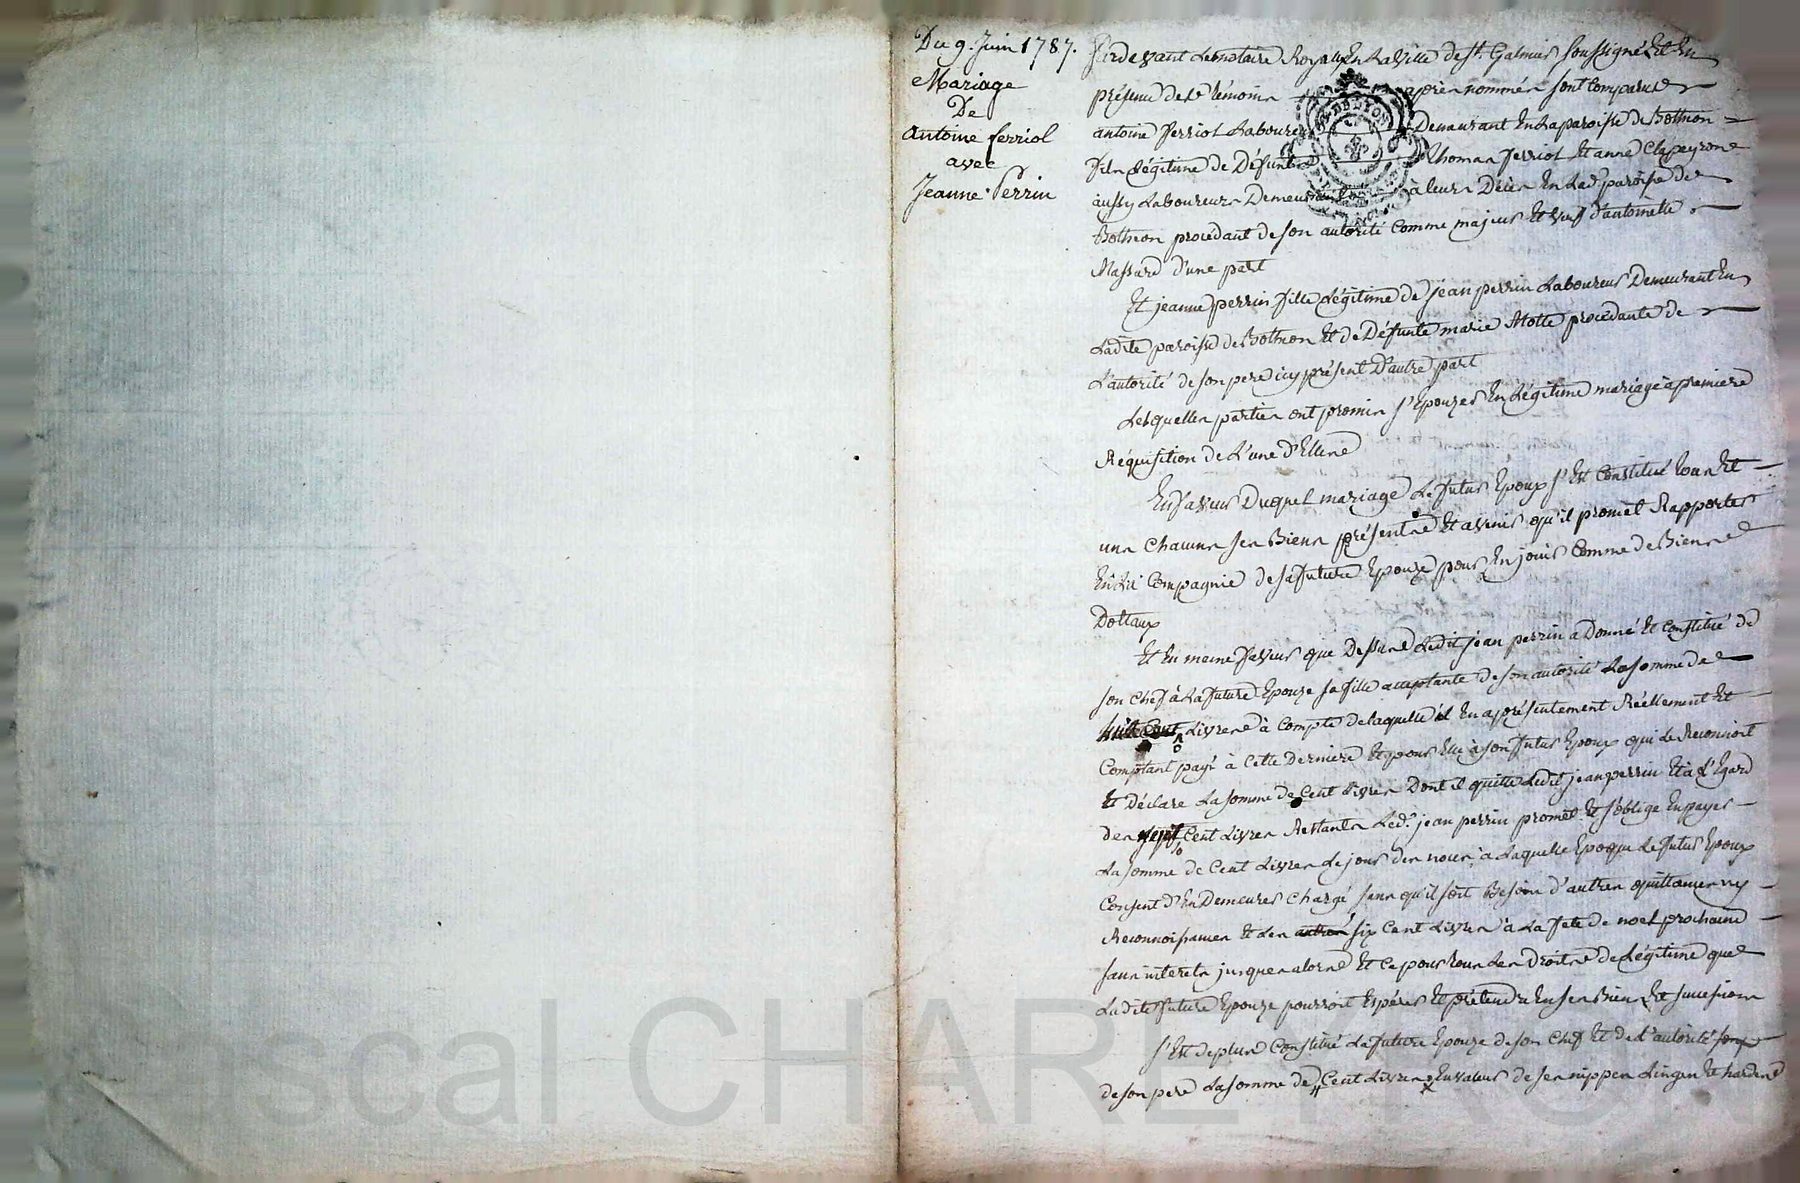 Du 9. Juin 1787.
Mariage
De
Antoine ferriol
avec
Jeanne Perrin
Pardevant Le notaire Royal En La Ville de St. Galmier soussigné Et En
présence des témoins après nommés sont comparus
antoine ferriol Laboureur Demeurant En La paroisse de Bothéon
fils Légitime de Défunts Thomas ferriol Et anne Clapeyrone
aussy Laboureurs Demeurant à leurs Décès En Lad. paroisse de
Bothéon procédant de son autorité Comme majeur Et veuf d'antoinette
Massard d'une part
Et jeanne perrin fille Légitime de jean perrin Laboureur Demeurant En
Ladite paroisse de Bothéon Et de Défunte marie Motte procédante de
L'autorité de son pere icy présent D'autre part
Lesquelles parties ont promis s'Epouzer En Légitime mariage à premiere
Réquisition de L'une d'Elles
En faveur Duquel mariage Le futur Epoux s'Est Constitué tous Et
uns Chacuns ses Biens présents Et avenir qu'il promet Rapporter
En La Compagnie de sa future Epouze pour En jouir Comme de Biens
Dottaux
Et En meme faveur que Dessus Ledit jean perrin a Donné Et Constitué de
son Chef à La future Epouze sa fille acceptante de son autorité La somme de
huit Cent Livres à Compte de laquelle il En a présentement Réellement Et
Comptant payé à Cette derniere Et pour Elle à son futur Epoux qui Le Reconnoit
Et Déclare La somme de Cent Livres Dont il quitte Ledit jean perrin Et à L'Egard
des sept Cent Livres Restants Led. jean perrin promet Et s'oblige En payer
La somme de Cent Livres Le jour des noces à Laquelle Epoque Le futur Epoux
Consent d'En Demeurer Chargé sans qu'il soit Besoin d'autres quittances ny
Reconnoissances Et Les autres six Cent Livres à La fete de noel prochaine
sans interets jusques alors Et Ce pour tous Les Droits de Légitime que
Ladite future Epouze pourroit Espérer Et prétendre En ses Biens Et succession
S'Est de plus Constitué La future Epouze de son Chef Et de L'autorité
de son pere La somme de Cent Livres En valeur de ses nippes Linges Et hardes
scal CHAREYRON